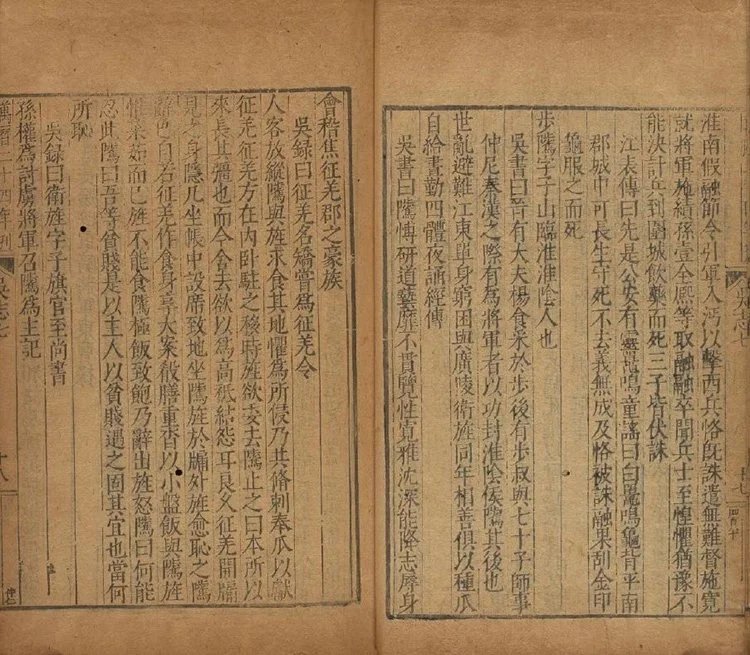 淮南假融節令引軍入沔以擊西兵恪既誅遣無難督施寛
就將軍施績孫壹全熙等取融融卒聞兵士至惶懼猶豫不
能決計兵到圍城飲藥而死三子皆伏誅
江表傳曰先是公安有靈鼉鳴童謠曰白鼉鳴龜背平南
郡城中可長生守死不去義無成及恪被誅融果刮金印
龜服之而死
步騭字子山臨淮淮陰人也
吳書曰晉有大夫楊食采於步後有步叔與七十子師事
仲尼秦漢之際有為將軍者以功封淮陰侯騭其後也
世亂避難江東單身窮困與廣陵衛旌同年相善俱以種瓜
自給晝動四體夜誦經傳
吳書曰騭博研道藝靡不貫覽性寛雅沈深能降志辱身
會稽焦征羌郡之豪族
吳録曰征羌名矯嘗為征羌令
人客放縱騭與旌求食其地懼為所侵乃共脩刺奉瓜以獻
征羌征羌方在内卧駐之移時旌欲委去騭止之曰本所以
來畏其彊也而今舍去欲以為高秪結怨耳良久征羌開牖
見之身隱几坐帳中設席致地坐騭旌於牖外旌愈恥之騭
辭色自若征羌作食身享大案殽膳重沓以小盤飯與騭旌
惟菜茹而已旌不能食騭極飯致飽乃辭出旌怒騭曰何能
忍此騭曰吾等貧賤是以主人以貧賤遇之固其宜也當何
所恥
吳録曰衛旌字子旗官至尚書
孫權為討虜將軍召騭為主記
萬曆二十四年刊 吳志七 十八